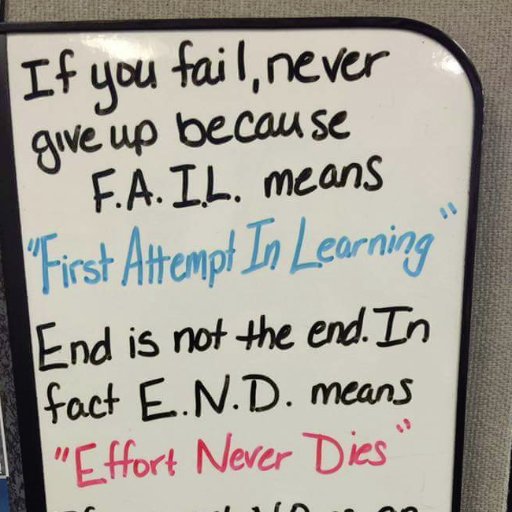 If you fail, never
give up because
F.A.I.L. means
"First Attempt In Learning"
End is not the end. In
fact E.N.D. means
"Effort Never Dies"